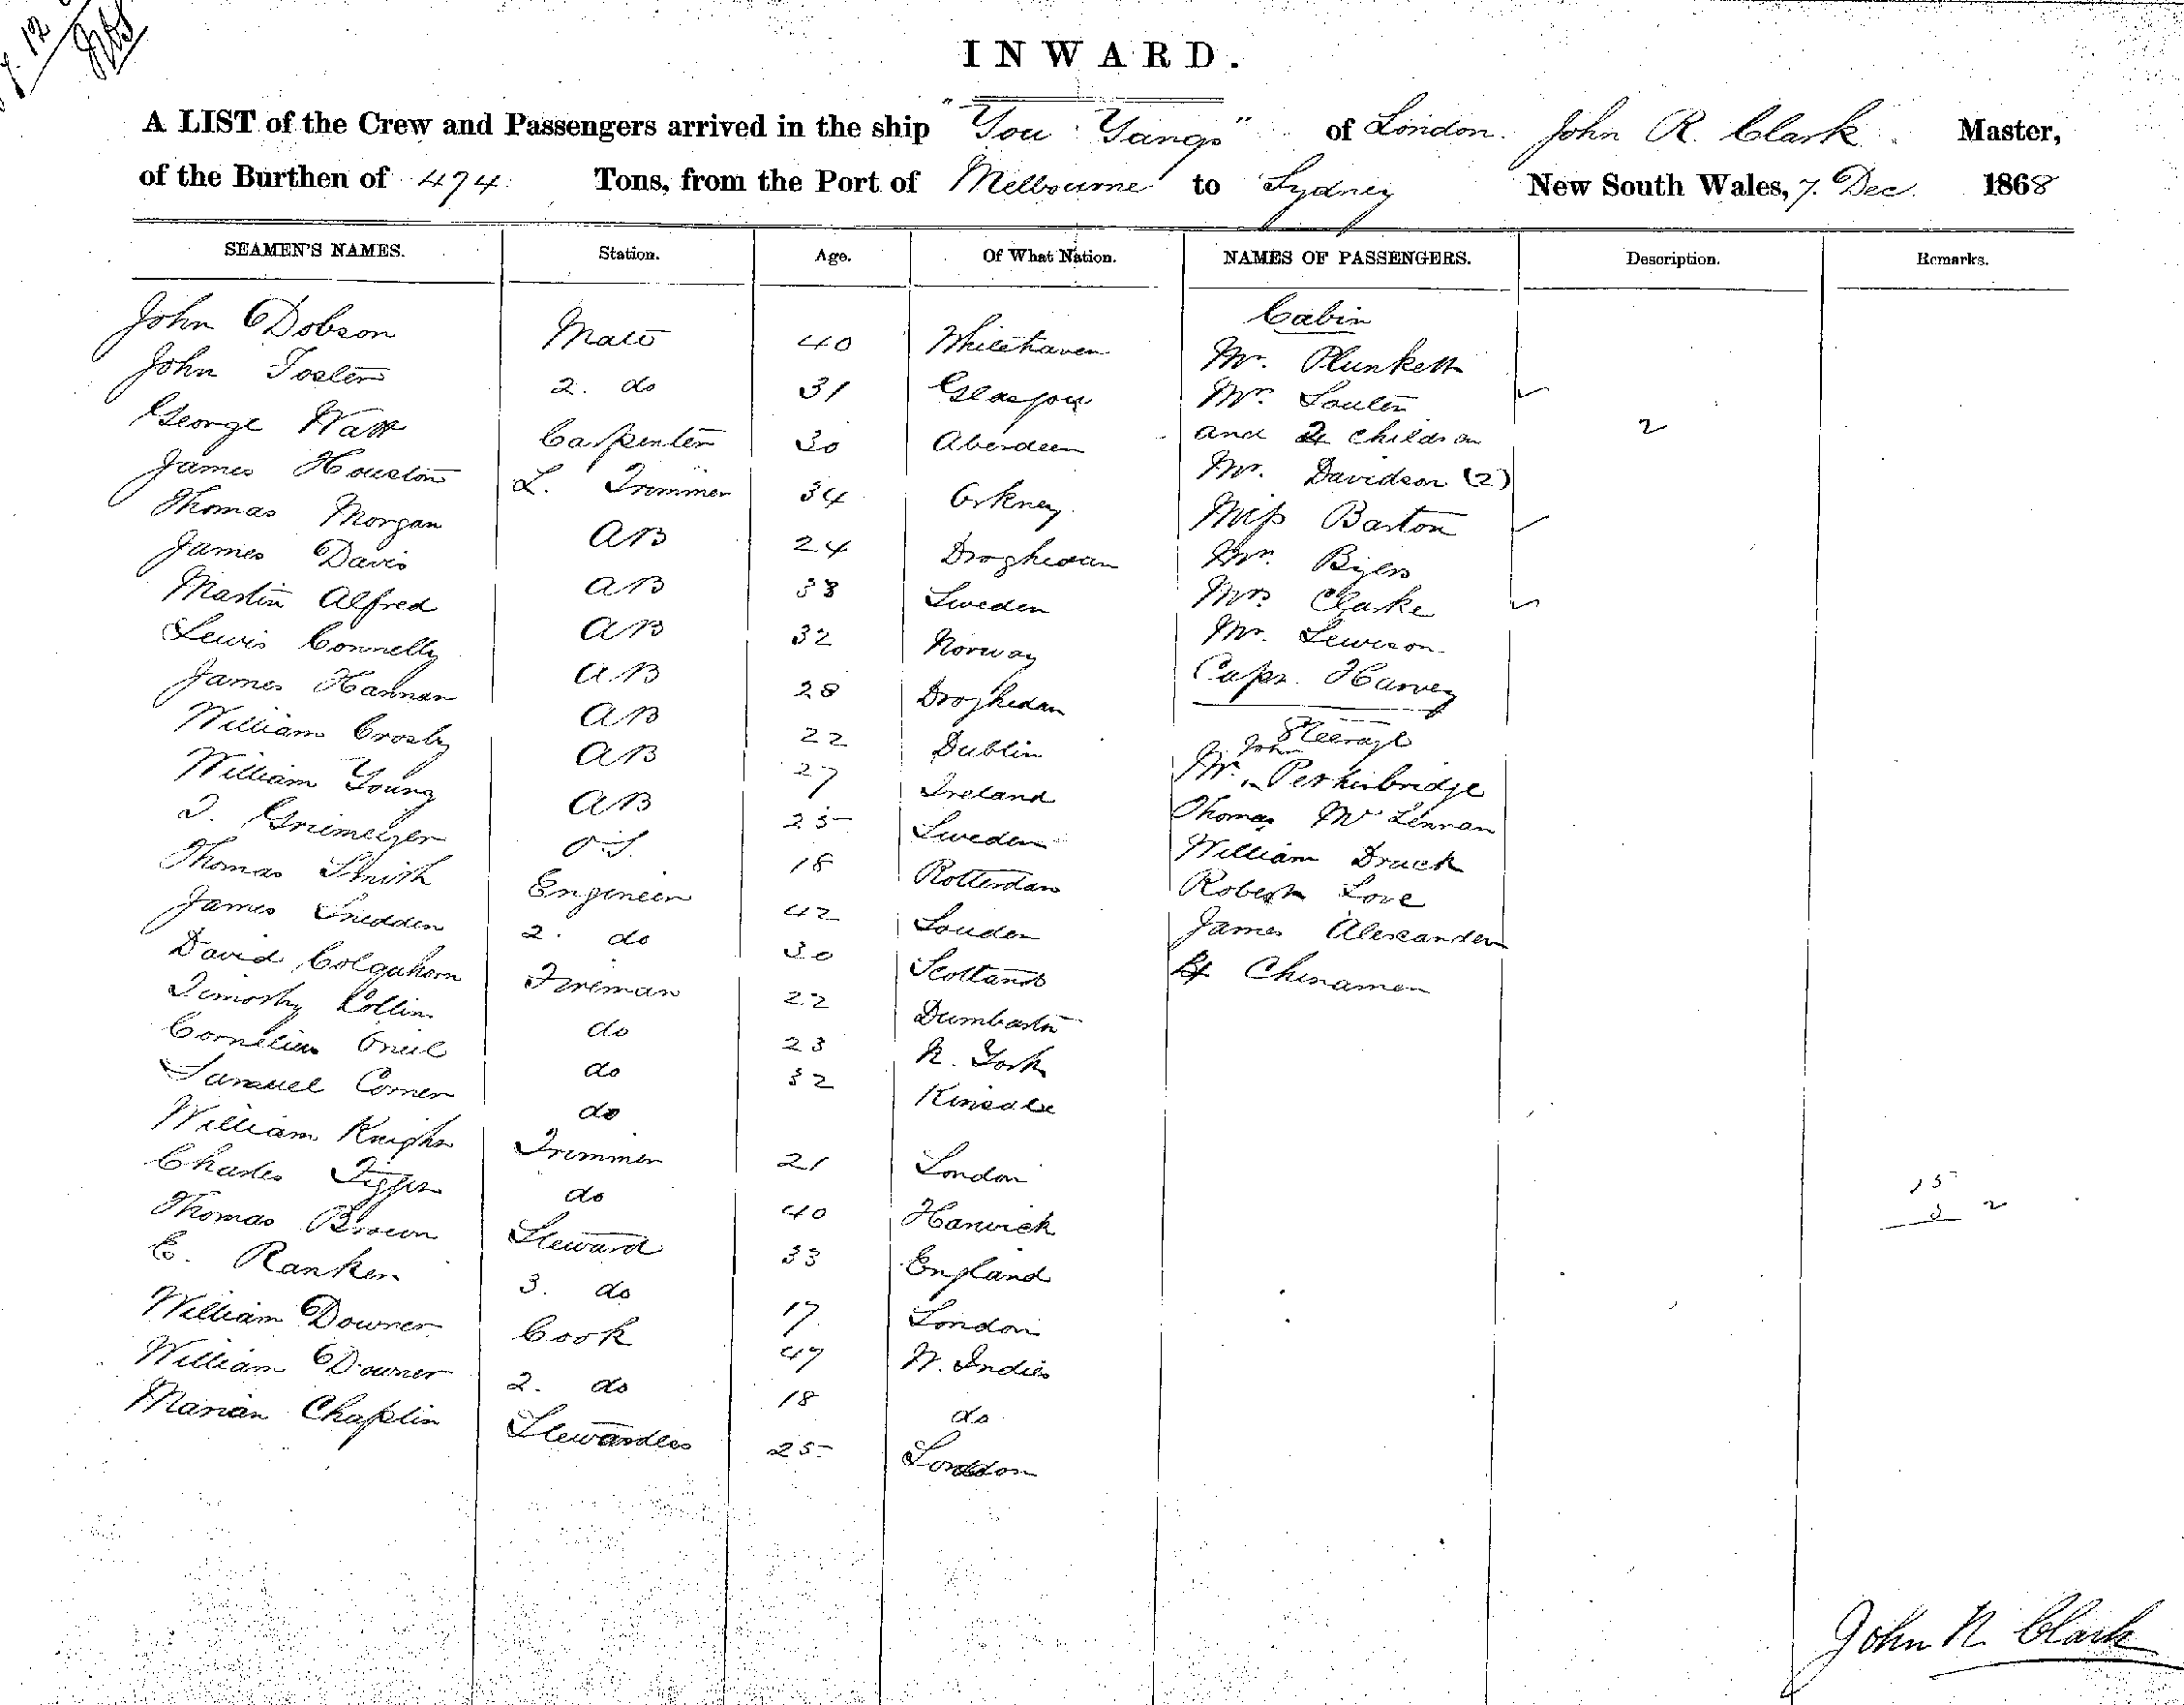 7. 12
INWARD.
A LIST of the Crew and Passengers arrived in the ship "You Yangs" of London. John R. Clark Master,
of the Burthen of 474 Tons, from the Port of Melbourne to Sydney New South Wales, 7. Dec. 1868
SEAMEN'S NAMES. Station. Age. Of What Nation. NAMES OF PASSENGERS. Description. Remarks.
Cabin
John Dobson Mate 40 Whitehaven Mr. Plunkett
John Foster 2. do 31 Glasgow Mrs. Souter
George Watt Carpenter 30 Aberdeen and 2 children 2
James Houston L. Trimmer 34 Orkney Mr. Davidson (2)
Thomas Morgan AB 24 Droghedan Miss Barton
James Davis AB 38 Sweden Mr. Byers
Martin Alfred AB 32 Norway Mrs Clarke
Lewis Connelly AB 28 Droghedan Mr. Lewison
James Hannan AB 22 Dublin Capt. Harvey
Steerage
William Crosby AB 27 Ireland Mr. John Perkinbridge
William Young AB 25 Sweden Thomas McLennan
J. Griemelzer O.S. 18 Rotterdam William Druck
Thomas Smith Engineer 42 London Robert Love
James Snedden 2. do 30 Scotland James Alexander
David Colquhorn Fireman 22 Dumbarton 4 Chinamen
Timothy Collin do 23 N. York
Cornelius Oneil do 32 Kinsale
Samuel Comer do
William Knight Trimmer 21 London
Charles Tigger do 40 Harwich 15
Thomas Brown Steward 33 England 2
E. Ranken 3. do 17 London
William Downer Cook 47 W. Indies
William Downer 2. do 18 do
Marian Chaplin Stewardess 25 London
John R. Clark